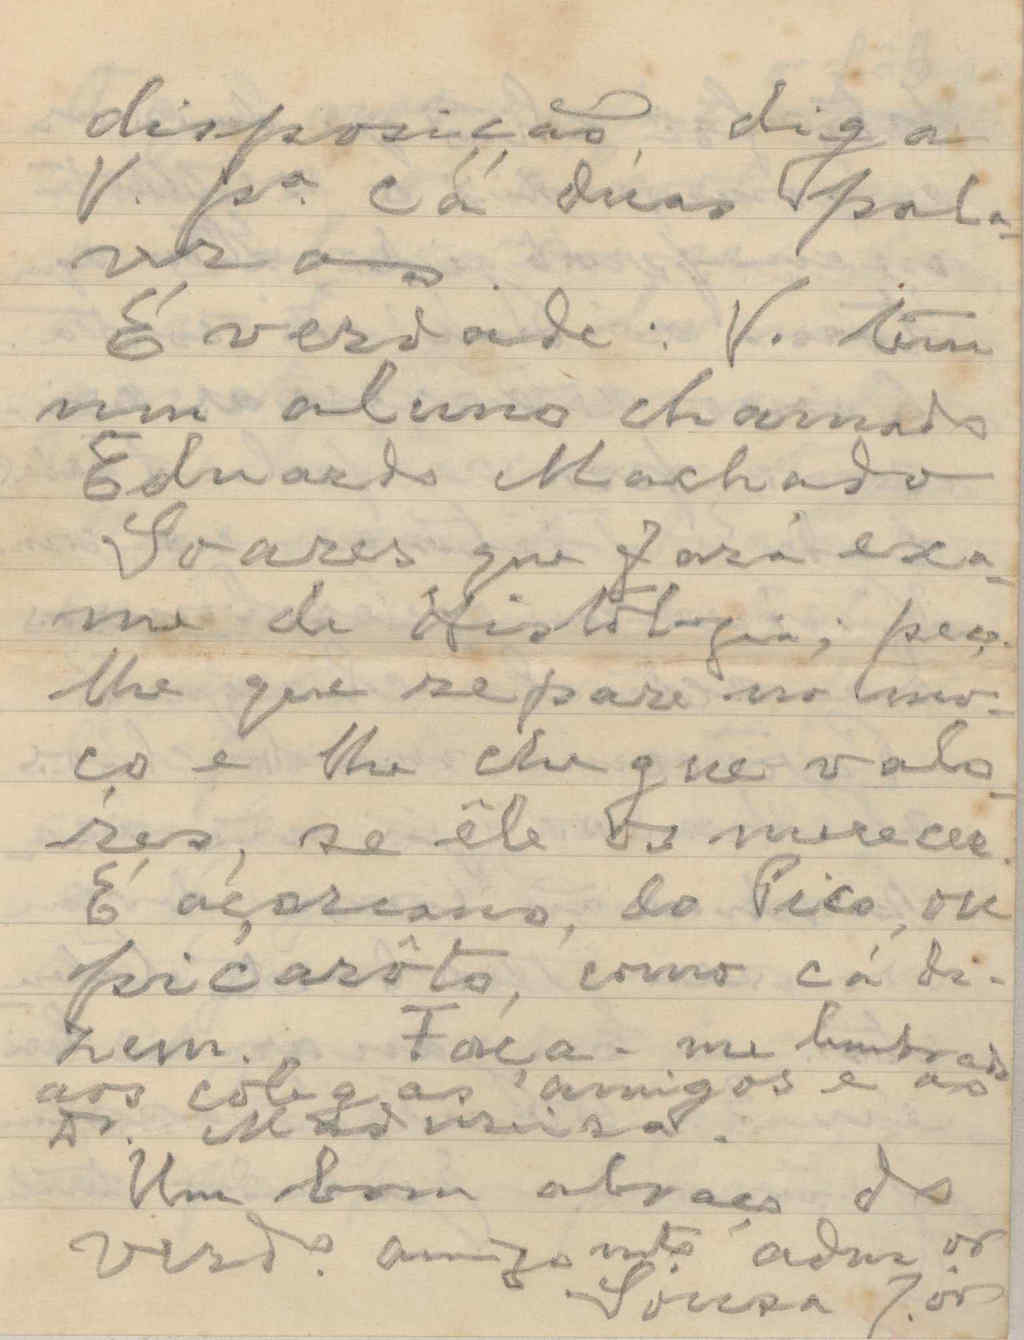 disposição, diga
V. pª. cá duas pala-
vras
É verdade: V. têm
um aluno chamado
Eduardo Machado
Soares que fará exa-
me de Histologia; peço-
lhe que repare no mo-
ço e lhe chegue valo-
res, se êle os merecer.
É açoreano, do Pico, ou
picarôto, como cá di-
zem. Faça-me lembrado
aos colegas amigos e ao
Dr. Madureira.
Um bom abraço do
verdº. amigo mtº admor
Sousa Jor